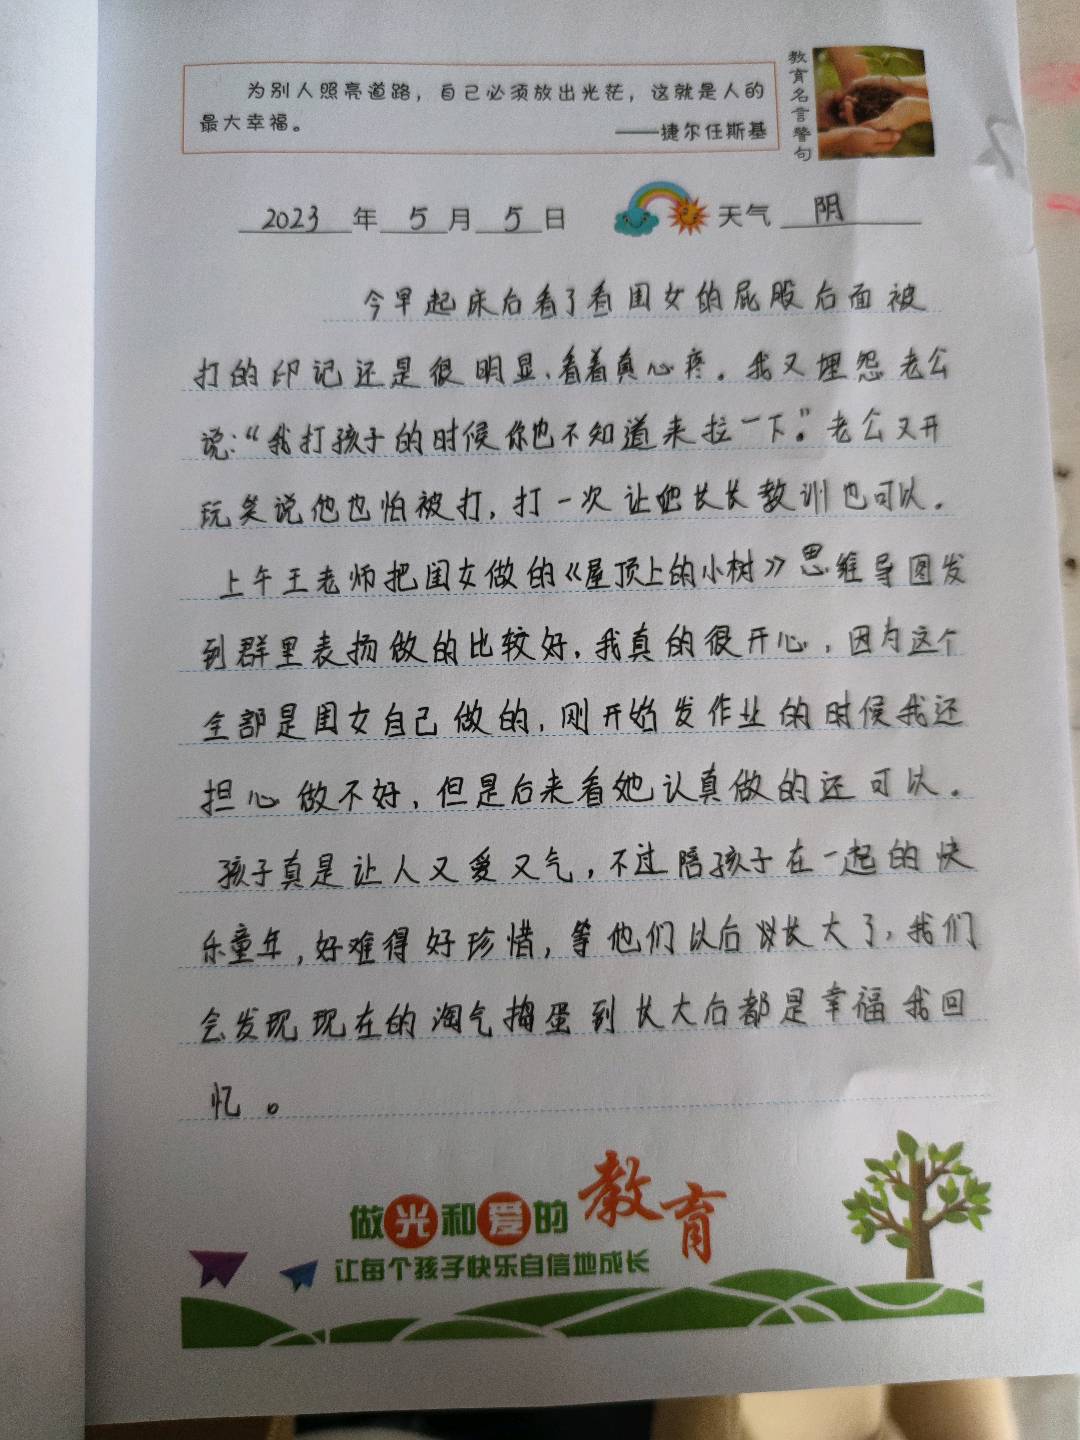 为别人照亮道路，自己必须放出光茫，这就是人的
最大幸福。
——捷尔任斯基
教育名言警句
2023年5月5日 天气 阴
今早起床后看了看闺女的屁股后面被
打的印记还是很明显、看着真心疼。我又埋怨老公
说：“我打孩子的时候你也不知道来拉一下。”老公又开
玩笑说他也怕被打，打一次让她长长教训也可以。
上午王老师把闺女做的《屋顶上的小树》思维导图发
到群里表扬做的比较好，我真的很开心，因为这个
全部是闺女自己做的，刚开始发作业的时候我还
担心做不好，但是后来看她认真做的还可以。
孩子真是让人又爱又气，不过陪孩子在一起的快
乐童年，好难得好珍惜，等他们以后长大了，我们
会发现现在的淘气捣蛋到长大后都是幸福我回
忆。
做光和爱的教育
让每个孩子快乐自信地成长